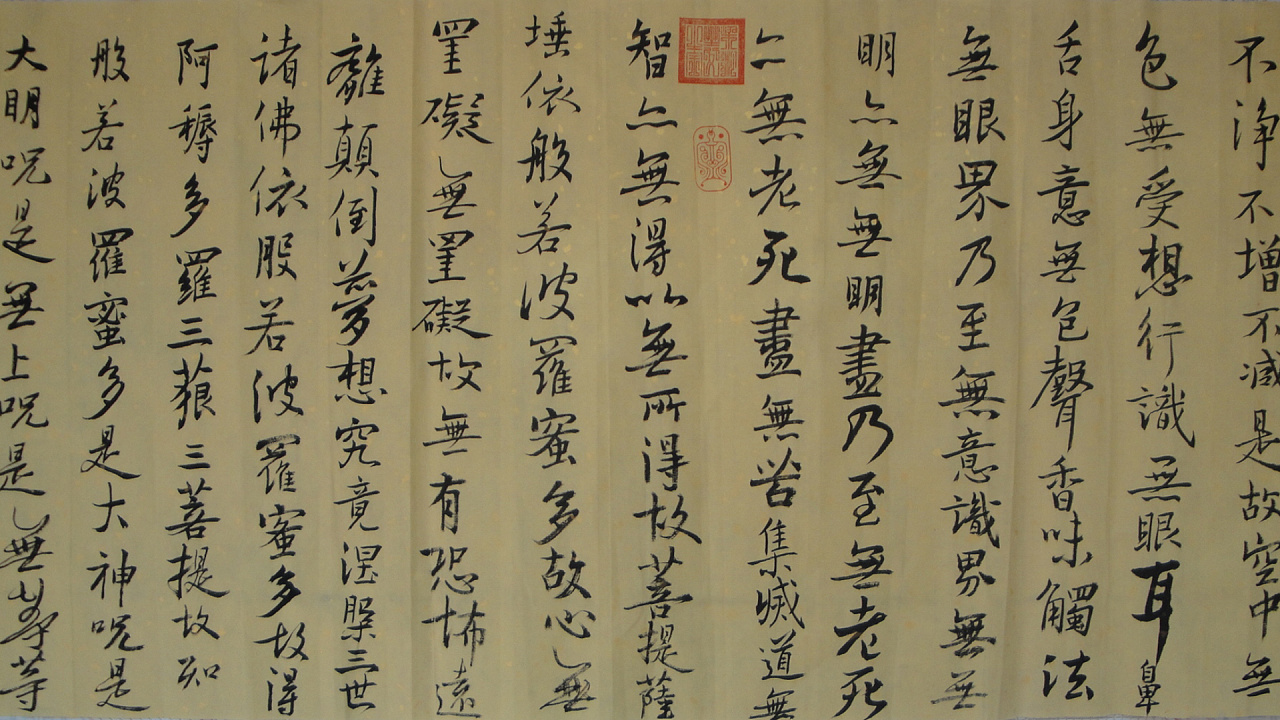 不淨不增不減是故空中無
色無受想行識無眼耳鼻
舌身意無色聲香味觸法
無眼界乃至無意識界無無
明亦無無明盡乃至無老死
亦無老死盡無苦集滅道無
智亦無得以無所得故菩提薩
埵依般若波羅蜜多故心無
罣礙無罣礙故無有恐怖遠
離顛倒夢想究竟涅槃三世
諸佛依般若波羅蜜多故得
阿耨多羅三藐三菩提故知
般若波羅蜜多是大神呪是
大明呪是無上呪是無等等